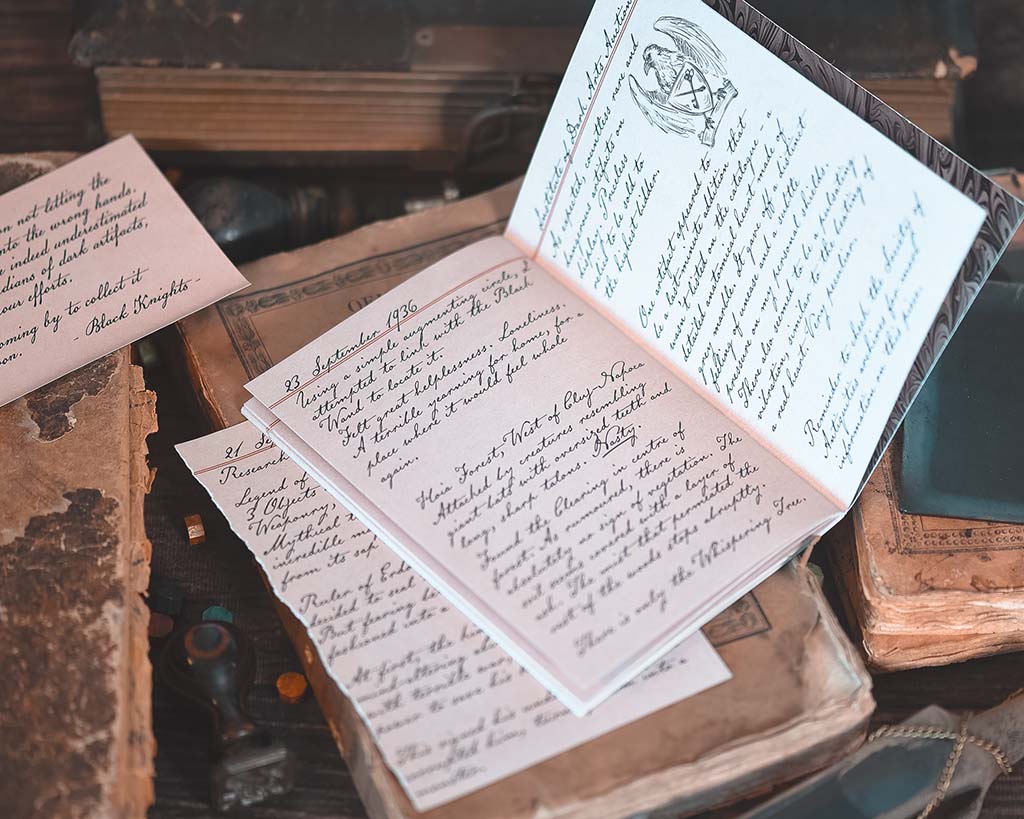 n not letting the
nto the wrong hands.
indeed underestimated
dians of dark artifacts,
our efforts.
oming by to collect it
oon.
- Black Knights -
OF
21 Se
Research
Legend of
3 Objects
Weaponry,
Mythical t
incredible m
from its sep
Ruler of End
decided to seal
But fearing
fashioned into a
At first, the
mind-altering
with terrible
power to
This
corrupted him,
monster.
23 September 1936
Using a simple augmenting circle, I
attempted to link with the Black
Wand to locate it.
Felt great helplessness. Loneliness.
A terrible yearning for home, for a
place where it would feel whole
again.
Hoia Forest, West of Cluj-Napoca
Attacked by creatures resembling
giant bats with oversized teeth and
long, sharp talons. Nasty.
Found the Clearing in centre of
forest. As rumoured, there is
absolutely no sign of vegetation. The
soil was covered with a layer of
ash. The mist that permeated the
rest of the woods stops abruptly.
There is only the Whispering Tree.
Institute of Dark Arts Auction
As expected, countless rare and
infamous artifacts on
display. Priceless
relics to be sold to
the highest bidder.
Our object appeared to be
a last-minute addition that
wasn't listed in the catalogue - a
detailed anatomical heart made of
grey marble. It gave off a distinct
feeling of unease and a subtle
pressure on my personal shields.
There also seemed to be a pulsating
vibration, similar to the beating of
a real heart. Very peculiar.
Reminder to check the Society of
Antiquities archives for any
information on this piece.